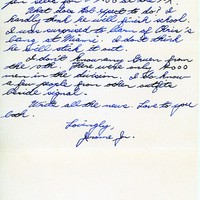 What does Bob want to do? I
hardly think he will finish school.
I was surprised to learn of Chris's
being at Miami. I don't think
he will stick it out.
I don't know any Green from
the 10th. There were only 8000
men in the division. I do know
a few people from other outfits
beside signal.
Write all the news. Love to you
both.
Lovingly,
Jerome Jr.